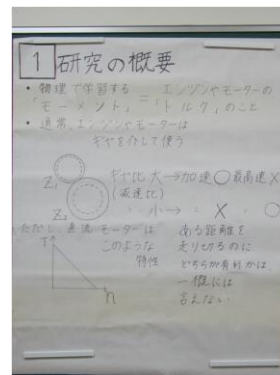 1 研究の概要
• 物理で学習する エンジンやモーターの
「モーメント」=「トルク」のこと
• 通常、エンジンやモーターは
ギヤを介して使う
Z₁
Z₂
ギヤ比 大→加速○最高速×
(減速比)
〃 小→ 〃 × 〃 ○
ただし、直流モーターは
このような
特性
T
n
ある距離を
走り切るのに
どちらが有利かは
一概には
言えない